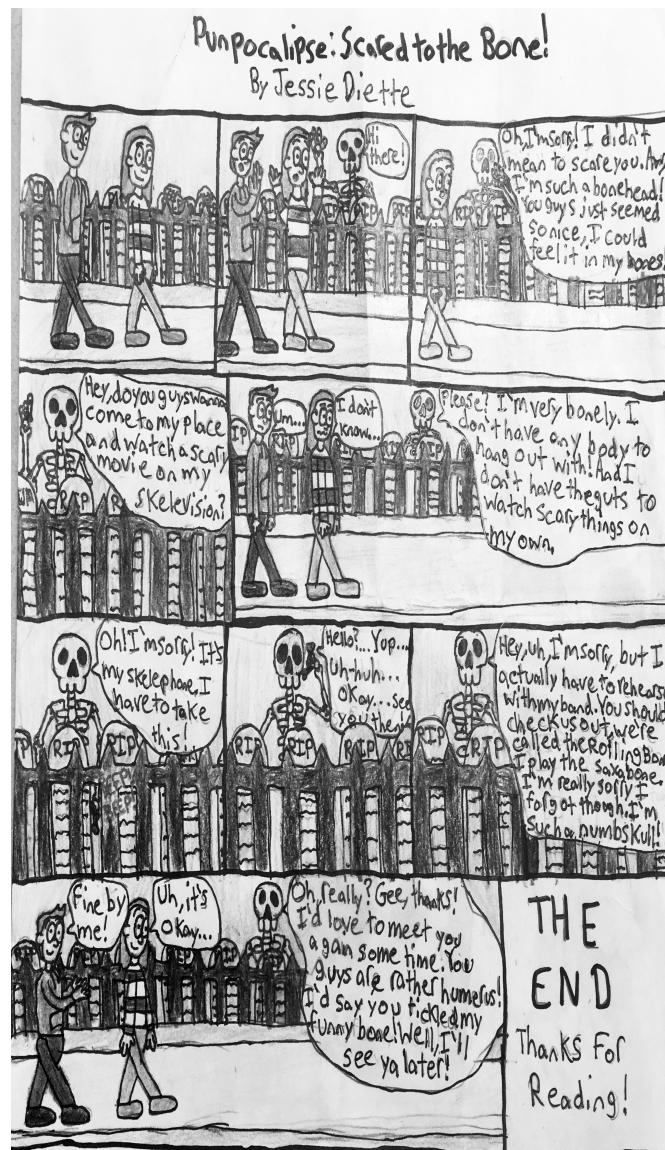 Punpocalipse: Scared to the Bone!
By Jessie Diette
RIP
Hi
there!
RIP
RIP
RIP
Oh, I'm sorry! I didn't
mean to scare you.
I'm such a bonehead!
You guys just seemed
so nice, I could
feel it in my bones.
RIP
RIP
Hey, do you guys wanna
come to my place
and watch a scary
movie on my
skelevision?
RIP
RIP
Um...
I don't
know...
RIP
RIP
Please? I'm very bonely. I
don't have any body to
hang out with! And I
don't have the guts to
watch scary things on
my own.
Oh! I'm sorry! It's
my skelephone, I
have to take
this!
RIP
RIP
Hello?...Yup...
Uh-huh...
Okay...see
you then!
RIP
RIP
RIP
RIP
Hey, uh, I'm sorry, but I
actually have to rehears
with my band. You should
check us out, we're
called the Rolling Bon
I play the saxabone.
I'm really sorry I
forgot though. I'm
such a numbskull!
RIP
RIP
Fine by
me!
Uh, it's
okay...
Oh, really? Gee, thanks!
I'd love to meet you
again some time. You
guys are rather humerus!
I'd say you tickled my
funny bone! Well, I'll
see ya later!
THE
END
Thanks For
Reading!